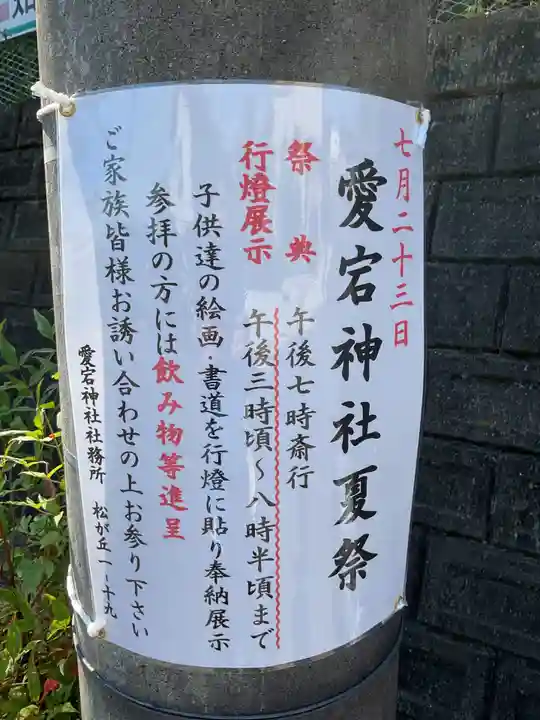 七月二十三日
愛宕神社夏祭
祭典 午後七時斎行
行燈展示 午後三時頃～八時半頃まで
子供達の絵画・書道を行燈に貼り奉納展示
参拝の方には飲み物等進呈
ご家族皆様お誘い合わせの上お参り下さい
愛宕神社社務所 松が丘一-十九